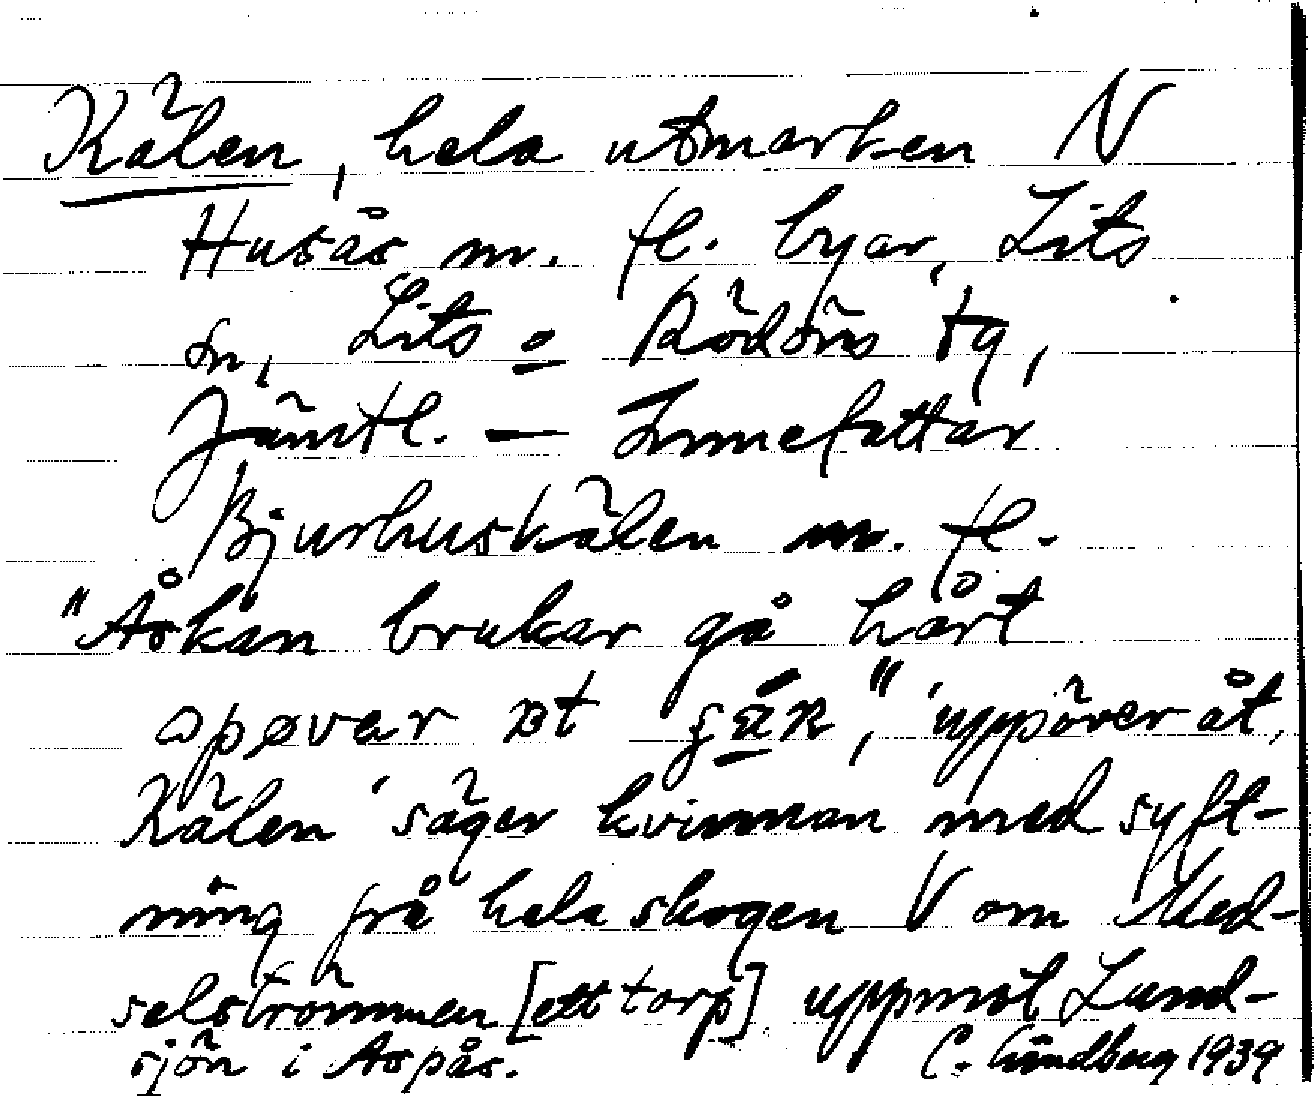 Kälen, hela utmarken N
Husås m. fl. byar, Lits
sn, Lits o Rödöns tg,
Jämtl. — Innefattar
Bjurhuskälen m. fl.
"Åskan brukar gå hårt
opøvar
uppöver åt,
Kälen' säger kvinnan med syft-
ning på hela skogen V om Med-
selströmmen [ett torp] uppmot Land-
sjön i Aspås. C. Lindberg 1939